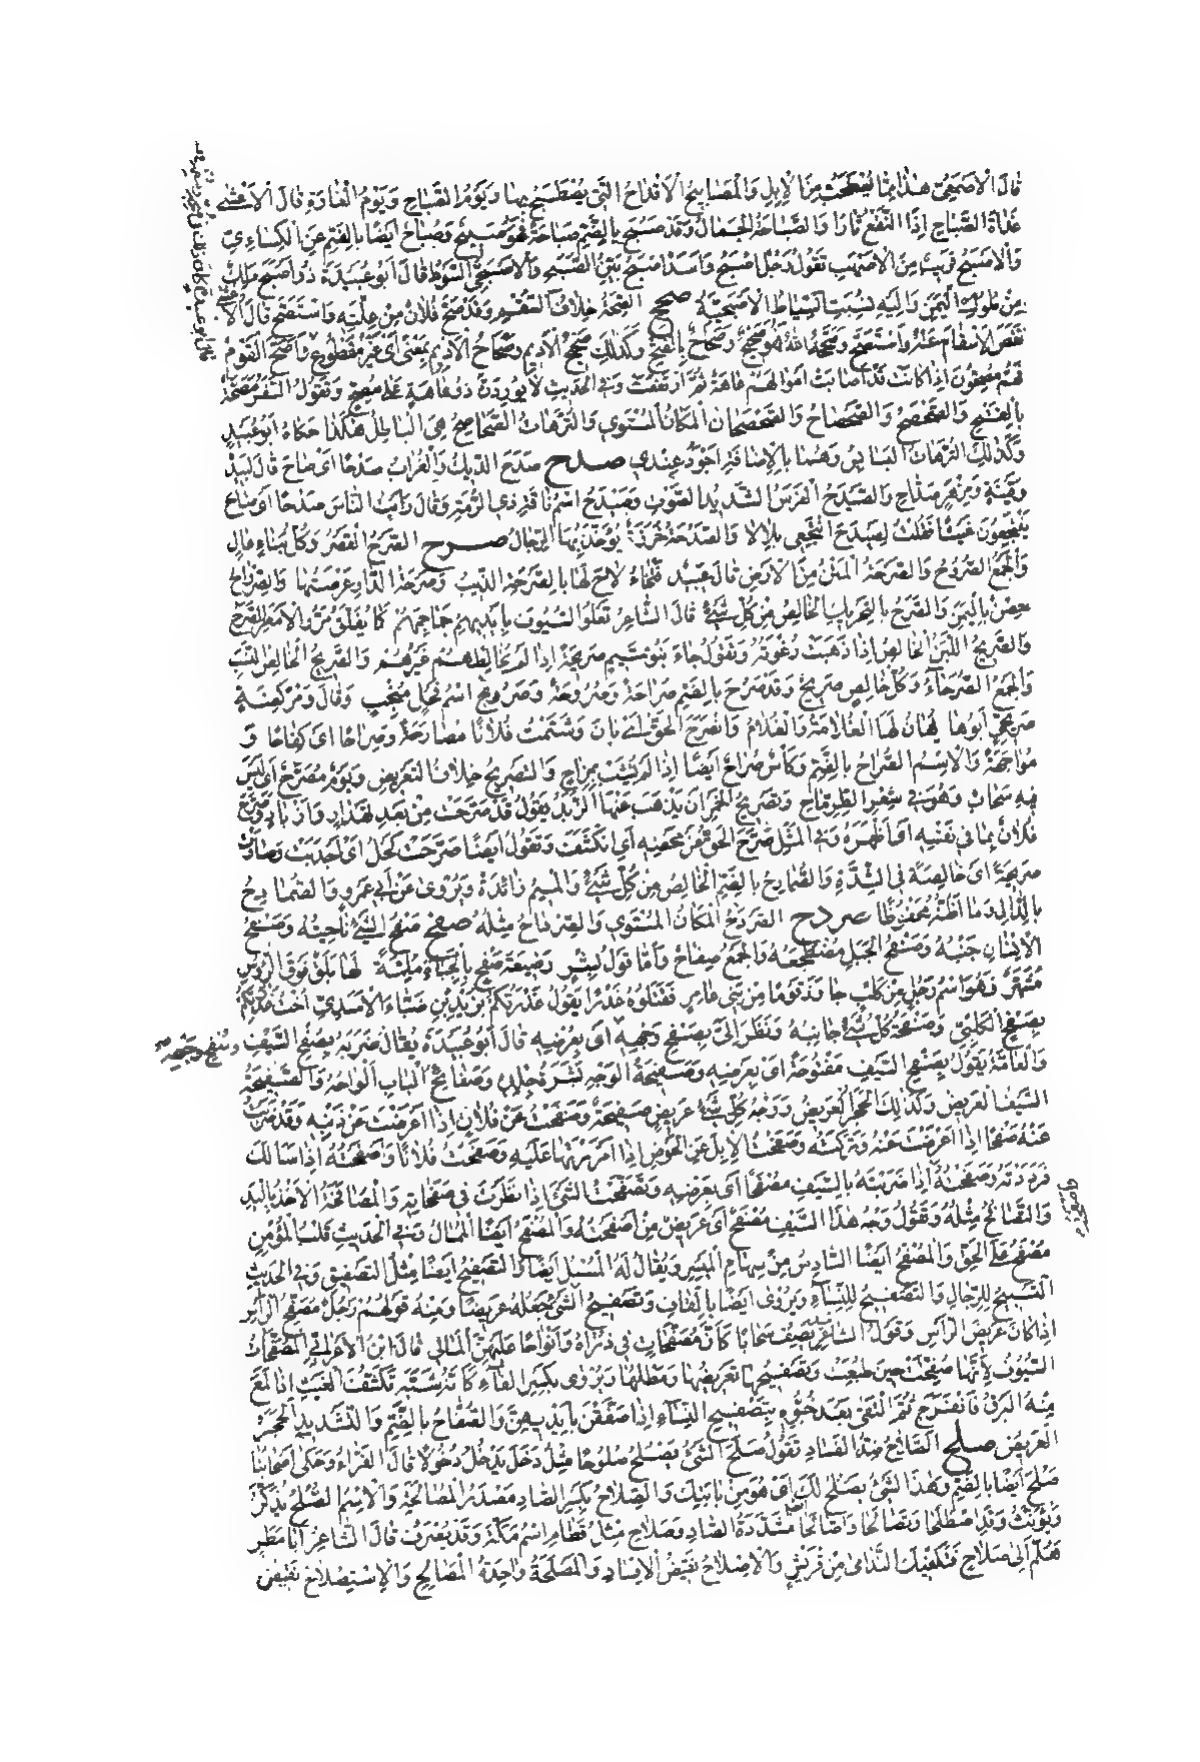 قَالَ الأَصْمَعِيُّ هَذَا مِمَّا يُسْتَحَبُّ مِنَ الإِبِلِ وَالْمَصَابِيحُ الأَقْدَاحُ الَّتِي يُصْطَبَحُ بِهَا وَيَوْمُ الصَّبَاحِ يَوْمُ الْغَارَةِ قَالَ الأَعْشَى
غَدَاةَ الصَّبَاحِ إِذَا النَّقْعُ ثَارَا وَالصَّبَاحَةُ الْجَمَالُ وَقَدْ صَبُحَ بِالضَّمِّ صَبَاحَةً فَهُوَ صَبِيحٌ وَصُبَاحٌ أَيْضًا بِالضَّمِّ عَنِ الْكِسَاءِيِّ
وَالأَصْبَحُ قَرِيبٌ مِنَ الأَصْهَبِ تَقُولُ رَجُلٌ أَصْبَحُ وَأَسَدٌ أَصْبَحُ بَيِّنُ الصَّبَحِ وَالأَصْبَحِيُّ السَّوْطُ قَالَ أَبُو عُبَيْدَةَ ذُو أَصْبَحَ مَلِكٌ
مِنْ مُلُوكِ الْيَمَنِ وَإِلَيْهِ نُسِبَتِ السِّيَاطُ الأَصْبَحِيَّةُ صحح الصِّحَّةُ خِلَافُ السُّقْمِ وَقَدْ صَحَّ فُلَانٌ مِنْ عِلَّتِهِ وَاسْتَصَحَّ قَالَ الأَعْشَى
نَفَضَ الأَسْقَامَ عَنْهُ وَاسْتَصَحَّ وَصَحَّحَهُ اللهُ فَهُوَ صَحِيحٌ وَصَحَاحٌ بِالْفَتْحِ وَكَذَلِكَ صَحِيحُ الأَدِيمِ وَصَحَاحُ الأَدِيمِ بِمَعْنًى أَيْ غَيْرُ مَقْطُوعٍ وَأَصَحَّ الْقَوْمُ
فَهُمْ مُصِحُّونَ إِذَا كَانَتْ قَدْ أَصَابَتْ أَمْوَالَهُمْ عَاهَةٌ ثُمَّ ارْتَفَعَتْ وَفِي الْحَدِيثِ لَا يُورِدَنَّ ذُو عَاهَةٍ عَلَى مُصِحٍّ وَتَقُولُ السَّفَرُ مَصَحَّةٌ
بِالْفَتْحِ وَالصَّحْصَحُ وَالصَّحْصَاحُ وَالصَّحْصَحَانُ الْمَكَانُ الْمُسْتَوِي وَالتُّرَّهَاتُ الصَّحَاصِحُ هِيَ الْبَاطِلُ هَكَذَا حَكَاهُ أَبُو عُبَيْدٍ
وَكَذَلِكَ التُّرَّهَاتُ الْبَسَابِسُ وَهُمَا بِالإِضَافَةِ أَجْوَدُ عِنْدِي صدح صَدَحَ الدِّيكُ وَالْغُرَابُ صَدْحًا أَيْ صَاحَ قَالَ لَبِيدٌ
وَقَيْنَةٍ وَمِزْهَرٍ صَدَّاحِ وَالصَّيْدَحُ الْفَرَسُ الشَّدِيدُ الصَّوْتِ وَصَيْدَحُ اسْمُ نَاقَةِ ذِي الرُّمَّةِ وَقَالَ رَأَيْتُ النَّاسَ
يَنْتَجِعُونَ غَيْثًا فَقُلْتُ لِصَيْدَحَ انْتَجِعِي بِلَالَا وَالصَّدَحَةُ خَرَزَةٌ يُؤَخَّذُ بِهَا الرِّجَالُ صرح الصَّرْحُ الْقَصْرُ وَكُلُّ بِنَاءٍ عَالٍ
وَالْجَمْعُ الصُّرُوحُ وَالصَّرْحَةُ الْمَتْنُ مِنَ الأَرْضِ قَالَ عَبِيدٌ فَتْخَاءُ لَاحَ لَهَا بِالصَّرْحَةِ الذِّيبُ وَصَرْحَةُ الدَّارِ عَرْصَتُهَا وَالصِّرْوَاحُ
حِصْنٌ بِالْيَمَنِ وَالصَّرَحُ بِالتَّحْرِيكِ الْخَالِصُ مِنْ كُلِّ شَيْءٍ قَالَ الشَّاعِرُ تَعْلُو السُّيُوفُ بِأَيْدِيهِمْ جَمَاجِمَهُمْ كَمَا يُفَلَّقُ مَرْوُ الأَمْعَزِ الصَّرَحُ
وَالصَّرِيحُ اللَّبَنُ الْخَالِصُ إِذَا ذَهَبَتْ رُغْوَتُهُ وَتَقُولُ جَاءَ بَنُو تَمِيمٍ صَرِيحَةً إِذَا لَمْ يُخَالِطْهُمْ غَيْرُهُمْ وَالصَّرِيحُ الْخَالِصُ النَّسَبِ
وَالْجَمْعُ الصُّرَحَاءُ وَكُلُّ خَالِصٍ صَرِيحٌ وَقَدْ صَرُحَ بِالضَّمِّ صَرَاحَةً وَصُرُوحَةً وَصَرِيحٌ اسْمُ فَحْلٍ مُنْجِبٍ وَقَالَ وَمُرْكِضَةٌ
صَرِيحِيٌّ أَبُوهَا يُهَانُ لَهَا الْغُلَامَةُ وَالْغُلَامُ وَانْصَرَحَ الْحَقُّ أَيْ بَانَ وَشَتَمْتُ فُلَانًا مُصَارَحَةً وَصِرَاحًا أَيْ كِفَاحًا وَ
مُوَاجَهَةً وَالاِسْمُ الصُّرَاحُ بِالضَّمِّ وَكَأْسٌ صُرَاحٌ أَيْضًا إِذَا لَمْ تُشَبْ بِمِزَاجٍ وَالتَّصْرِيحُ خِلَافُ التَّعْرِيضِ وَيَوْمٌ مُصَرِّحٌ أَيْ لَيْسَ
فِيهِ سَحَابٌ وَهُوَ فِي شِعْرِ الطِّرِمَّاحِ وَتَصْرِيحُ الْخَمْرِ أَنْ يَذْهَبَ عَنْهَا الزَّبَدُ يَقُولُ قَدْ صَرَّحَتْ مِنْ بَعْدِ تَهْدَارٍ وَإِزْبَادٍ وَصَرَّحَ
فُلَانٌ بِمَا فِي نَفْسِهِ أَيْ أَظْهَرَهُ وَفِي الْمَثَلِ صَرَّحَ الْحَقُّ عَنْ مَحْضِهِ أَيِ انْكَشَفَ وَتَقُولُ أَيْضًا صَرَّحَتْ كَحْلُ أَيْ أَجْدَبَتْ وَصَارَتْ
صَرِيحَةً أَيْ خَالِصَةً فِي الشِّدَّةِ وَالصُّمَادِحُ بِالضَّمِّ الْخَالِصُ مِنْ كُلِّ شَيْءٍ وَالْمِيمُ زَائِدَةٌ وَيُرْوَى عَنْ أَبِي عَمْرٍو وَالصُّمَادِحُ
بِالدَّالِ وَمَا أَظُنُّهُ مَحْفُوظًا صردح الصَّرْدَحُ الْمَكَانُ الْمُسْتَوِي وَالصِّرْدَاحُ مِثْلُهُ صفح صَفْحُ الشَّيْءِ نَاحِيَتُهُ وَصَفْحُ
الإِنْسَانِ جَنْبُهُ وَصَفْحُ الْجَبَلِ مُضْطَجَعُهُ وَالْجَمْعُ صِفَاحٌ وَأَمَّا قَوْلُ بِشْرٍ رَضِيعَةُ صَفْحٍ بِالْجِبَاهِ مُلِمَّةٌ لَهَا بَلَقٌ فَوْقَ الرُّؤُسِ
مُشَهَّرُ وَهُوَ اسْمُ رَجُلٍ مِنْ كَلْبٍ جَاوَرَ قَوْمًا مِنْ بَنِي عَامِرٍ فَقَتَلُوهُ غَدْرًا يَقُولُ غَدْرَتُكُمْ بِزَيْدِ بْنِ ضَبَّاءَ الأَسَدِيِّ أُخْتُ غَدْرَتِكُمْ
بِصَفْحٍ الْكَلْبِيِّ وَصَفْحَةُ كُلِّ شَيْءٍ جَانِبُهُ وَنَظَرَ إِلَيَّ بِصَفْحِ وَجْهِهِ أَيْ بِعُرْضِهِ قَالَ أَبُو عُبَيْدَةَ يُقَالُ ضَرَبَهُ بِصُفْحِ السَّيْفِ
وَالْعَامَّةُ يَقُولُ بِصَفْحِ السَّيْفِ مَفْتُوحَةً أَيْ بِعَرْضِهِ وَصَفِيحَةُ الْوَجْهِ بَشَرَةُ جِلْدِهِ وَصَفَائِحُ الْبَابِ أَلْوَاحُهُ وَالصَّفِيحَةُ
السَّيْفُ الْعَرِيضُ وَكَذَلِكَ الْحَجَرُ الْعَرِيضُ وَوَجْهُ كُلِّ شَيْءٍ عَرِيضٍ صَفِيحَةٌ وَصَفَحْتُ عَنْ فُلَانٍ إِذَا أَعْرَضْتَ عَنْ ذَنْبِهِ وَقَدْ ضَرَبْتُ
عَنْهُ صَفْحًا إِذَا أَعْرَضْتَ عَنْهُ وَتَرَكْتَهُ وَصَفَحْتُ الإِبِلَ عَنِ الْحَوْضِ إِذَا أَمْرَرْتَهَا عَلَيْهِ وَصَفَحْتُ فُلَانًا وَأَصْفَحْتُهُ إِذَا سَأَلَكَ
فَرَدَدْتَهُ وَصَفَحْتُهُ إِذَا ضَرَبْتَهُ بِالسَّيْفِ مُصْفَحًا أَيْ بِعَرْضِهِ وَتَصَفَّحْتُ الشَّيْءَ إِذَا نَظَرْتَ فِي صَفَحَاتِهِ وَالْمُصَافَحَةُ الأَخْذُ بِالْيَدِ
وَالتَّصَافُحُ مِثْلُهُ وَتَقُولُ وَجْهُ هَذَا السَّيْفِ مُصْفَحٌ أَيْ عَرِيضٌ مِنْ أَصْفَحْتُهُ وَالْمُصْفَحُ أَيْضًا الْمُمَالُ وَفِي الْحَدِيثِ قَلْبُ الْمُؤْمِنِ
مُصْفَحٌ عَلَى الْحَقِّ وَالْمُصْفَحُ أَيْضًا السَّادِسُ مِنْ سِهَامِ الْمَيْسِرِ وَيُقَالُ لَهُ الْمُسْبِلُ أَيْضًا وَالتَّصْفِيحُ أَيْضًا مِثْلُ التَّصْفِيقِ وَفِي الْحَدِيثِ
التَّسْبِيحُ لِلرِّجَالِ وَالتَّصْفِيحُ لِلنِّسَاءِ وَيُرْوَى أَيْضًا بِالْقَافِ وَتَصْفِيحُ الشَّيْءِ جَعْلُهُ عَرِيضًا وَمِنْهُ قَوْلُهُمْ رَجُلٌ مُصَفَّحُ الرَّأْسِ
إِذَا كَانَ عَرِيضَ الرَّأْسِ وَقَوْلُ الشَّاعِرِ يَصِفُ سَحَابًا كَأَنَّ مُصَفَّحَاتٍ فِي ذُرَاهُ وَأَنْوَاحًا عَلَيْهِنَّ الْمَآلِي قَالَ ابْنُ الأَعْرَابِيِّ الْمُصَفَّحَاتُ
السُّيُوفُ لِأَنَّهَا صُفِّحَتْ حِينَ طُبِعَتْ وَتَصْفِيحُهَا تَعْرِيضُهَا وَمَطْلُهَا وَيُرْوَى بِكَسْرِ الْفَاءِ كَأَنَّهُ شَبَّهَ تَكَشُّفَ الْغَيْثِ إِذَا لَمَعَ
مِنْهُ الْبَرْقُ فَانْفَرَجَ ثُمَّ الْتَقَى بَعْدَ خُبُوِّهِ بِتَصْفِيحِ النِّسَاءِ إِذَا صَفَّقْنَ بِأَيْدِيهِنَّ وَالصُّفَّاحُ بِالضَّمِّ وَالتَّشْدِيدِ الْحَجَرُ
الْعَرِيضُ صلح الصَّلَاحُ ضِدُّ الْفَسَادِ تَقُولُ صَلَحَ الشَّيْءُ يَصْلُحُ صُلُوحًا مِثْلُ دَخَلَ يَدْخُلُ دُخُولًا قَالَ الْفَرَّاءُ وَحَكَى أَصْحَابُنَا
صَلُحَ أَيْضًا بِالضَّمِّ وَهَذَا الشَّيْءُ يَصْلُحُ لَكَ أَيْ هُوَ مِنْ بَابَتِكَ وَالصِّلَاحُ بِكَسْرِ الصَّادِ مَصْدَرُ الْمُصَالَحَةِ وَالاِسْمُ الصُّلْحُ يُذَكَّرُ
وَيُؤَنَّثُ وَقَدِ اصْطَلَحَا وَتَصَالَحَا وَاصَّالَحَا مُشَدَّدَةَ الصَّادِ وَصَلَاحِ مِثْلُ قَطَامِ اسْمُ مَكَّةَ وَقَدْ يُصْرَفُ قَالَ الشَّاعِرُ أَبَا مَطَرٍ
هَلُمَّ إِلَى صَلَاحٍ فَتَكْفِيكَ النَّدَامَى مِنْ قُرَيْشٍ وَالإِصْلَاحُ نَقِيضُ الإِفْسَادِ وَالْمَصْلَحَةُ وَاحِدَةُ الْمَصَالِحِ وَالاِسْتِصْلَاحُ نَقِيضُ